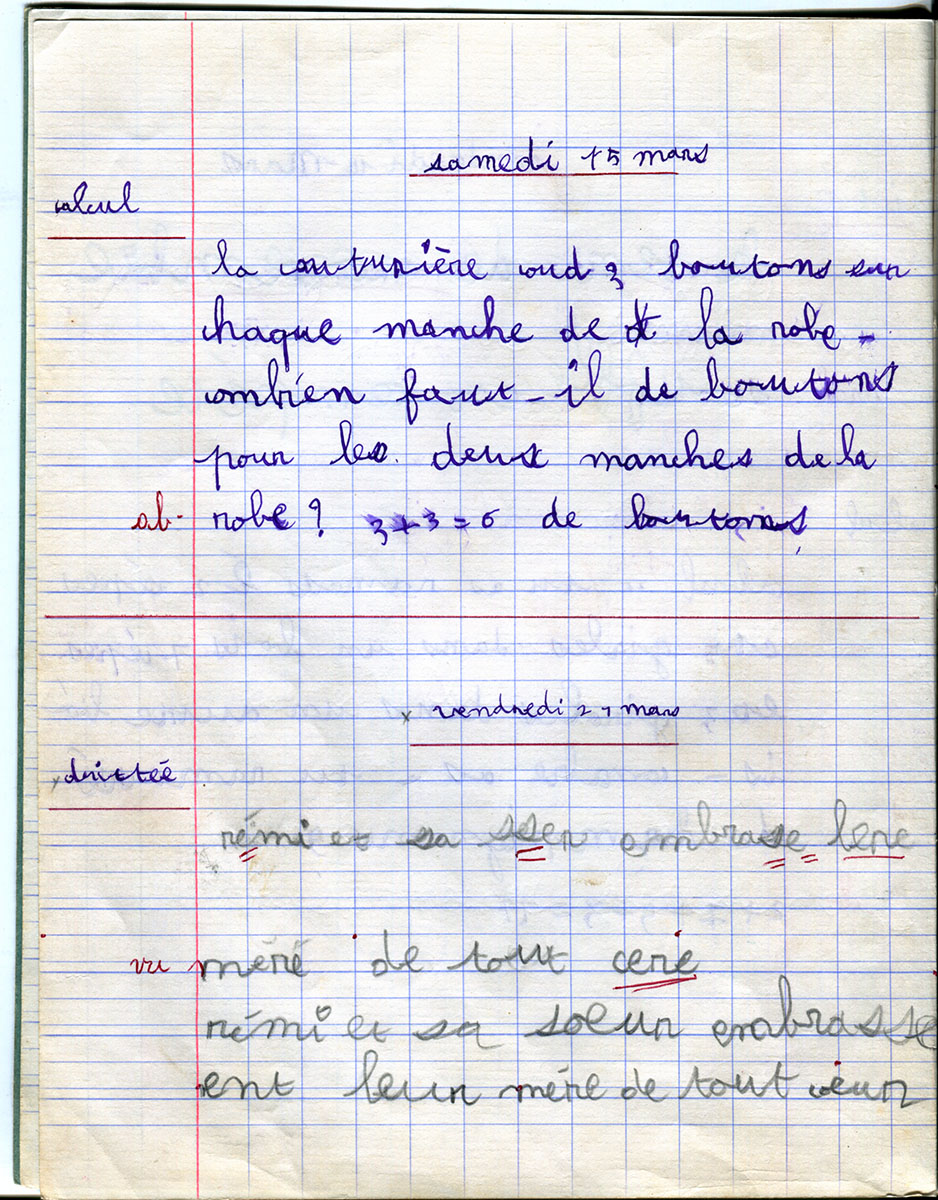 samedi 15 mars
calcul
la couturière coud 3 boutons sur
chaque manche de la robe -
combien faut-il de boutons
pour les deux manches de la
ab. robe ? 3+3=6 de boutons
x vendredi 21 mars
x drittée
rémi et sa sser embrase lere
vu mére de tout cere
rémi et sa soeur embrasse
ent leur mére de tout coeur